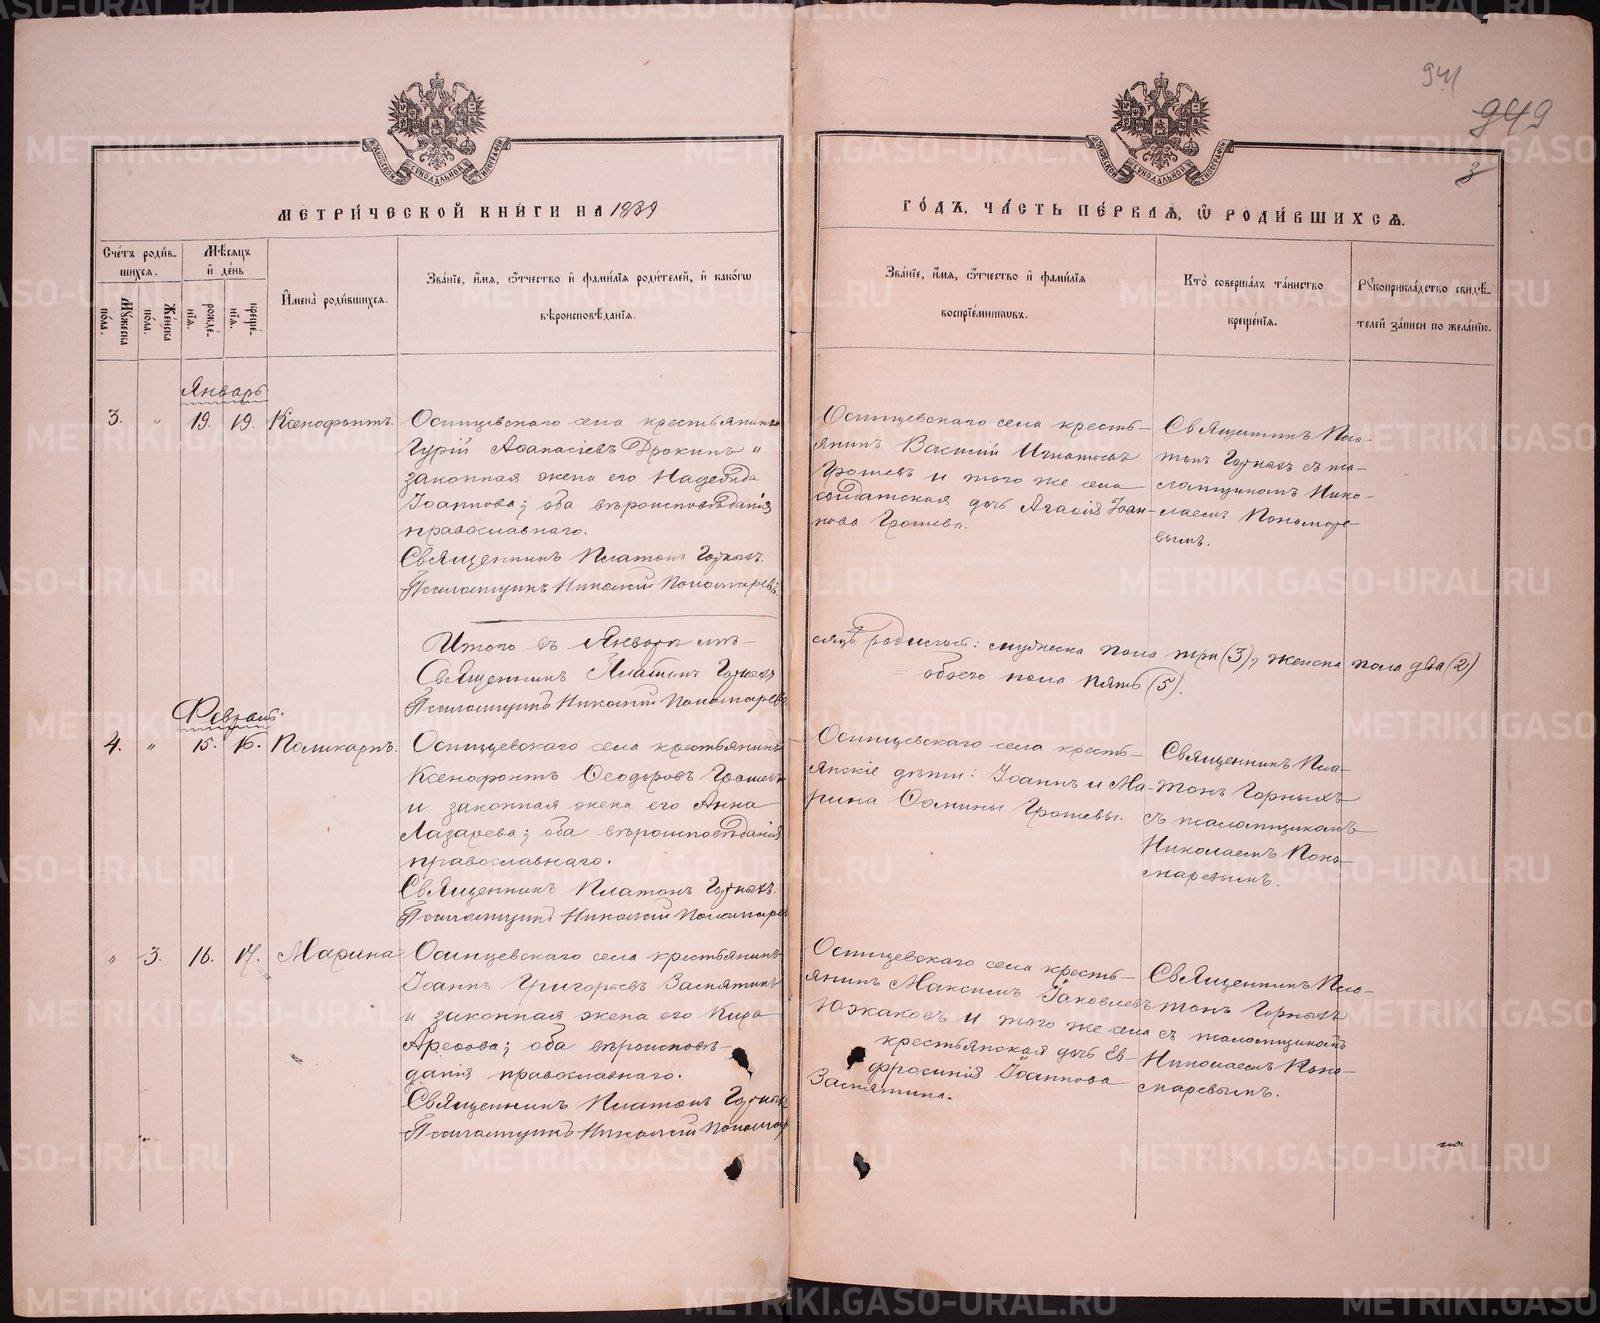 941
949
3
МЕТРИ́ЧЕСКОЙ КНИ́ГИ НА 1889
ГО́ДЪ, ЧА́СТЬ ПЕ́РВАѦ, Ѡ РОДИ́ВШИХСѦ.
Сче́тъ роди́в-
шихся.
Мѣ́сяцъ
и де́нь
Мꙋ́жеска
по́ла.
Же́нска
по́ла.
рожде́-
нїѧ.
креще́-
нїѧ.
И҆мена̀ роди́вшихся.
Зва́нїе, и҆́мѧ, ѻ҆́тчество и҆ фами́лїѧ роди́телей, и҆ како́гѡ
вѣроисповѣ́данїѧ.
Зва́нїе, и҆́мѧ, ѻ҆́тчество и҆ фами́лїѧ
воспрїе́мниковъ.
Кто̀ соверша́лъ та́инство
креще́нїѧ.
Рꙋкоприкла́дство свидѣ́-
телей за́писи по жела́нїю.
Январь
3. " 19. 19. Ксенофонтъ.
Осинцевскаго села крестьянинъ
Гурій Аѳанасіевъ Дрокинъ "
законная жена его Надежда
Іоаннова; оба вѣроисповѣданія
православнаго.
Священникъ Платонъ Горныхъ.
Псаломщикъ Николай Пономаревъ.
Осинцевскаго села кресть-
янинъ Василий Игнатьевъ
Грошевъ и того же села
солдатская дочь Агаѳія Іоан-
нова Грошева.
Священникъ Пла-
тонъ Горныхъ съ пса-
ломщикомъ Нико-
лаемъ Пономаре-
вымъ.
Итого въ Январѣ мѣ-
сяцѣ родилось: мужеска пола три (3), женска пола два (2)
= обоего пола пять (5).
Священникъ Платонъ Горныхъ
Псаломщикъ Николай Пономаревъ
Февраль.
4. " 15. 16. Поликарпъ.
Осинцевскаго села крестьянинъ
Ксенофонтъ Ѳеодоровъ Грошевъ
и законная жена его Анна
Лазарева; оба вѣроисповѣданія
православнаго.
Священникъ Платонъ Горныхъ.
Псаломщикъ Николай Пономаревъ
Осинцевскаго села кресть-
янскіе дѣти: Іоаннъ и Ма-
рина Ѳомины Грошевы.
Священникъ Пла-
тонъ Горныхъ
съ псаломщикомъ
Николаемъ Поно-
маревымъ.
" 3. 16. 17. Марина
Осинцевскаго села крестьянинъ
Іоаннъ Григорьевъ Заспятинъ
и законная жена его Кира
Ареѳова; оба вѣроисповѣ-
данія православнаго.
Священникъ Платонъ Горныхъ
Псаломщикъ Николай Пономар
Осинцевскаго села кресть-
янинъ Максимъ Іаковлевъ
Южаковъ и того же села
крестьянская дочь Ев-
фросинія Іоаннова
Заспятина.
Священникъ Пла-
тонъ Горныхъ
съ псаломщикомъ
Николаемъ Поно-
маревымъ.